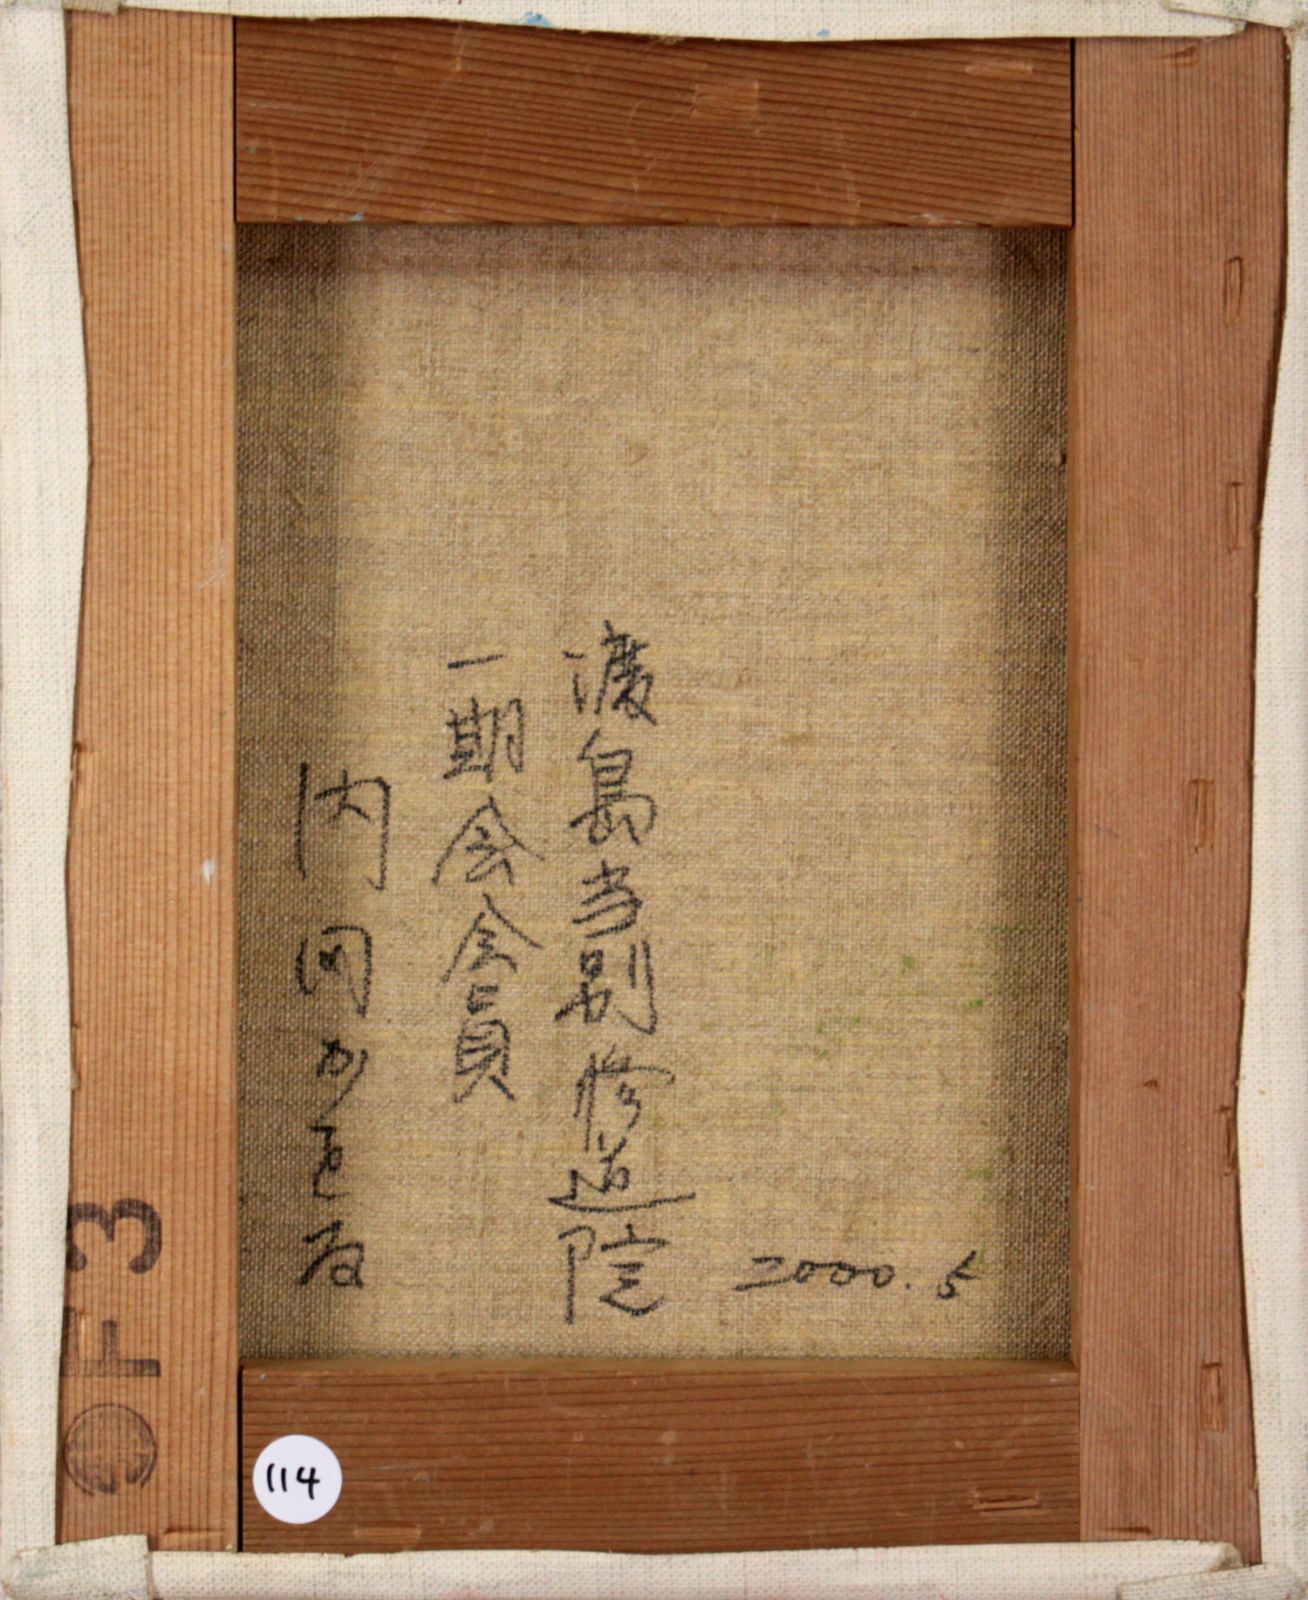 2000.5
渡島当別修道院
一期会会員
内岡かをる
F3
114